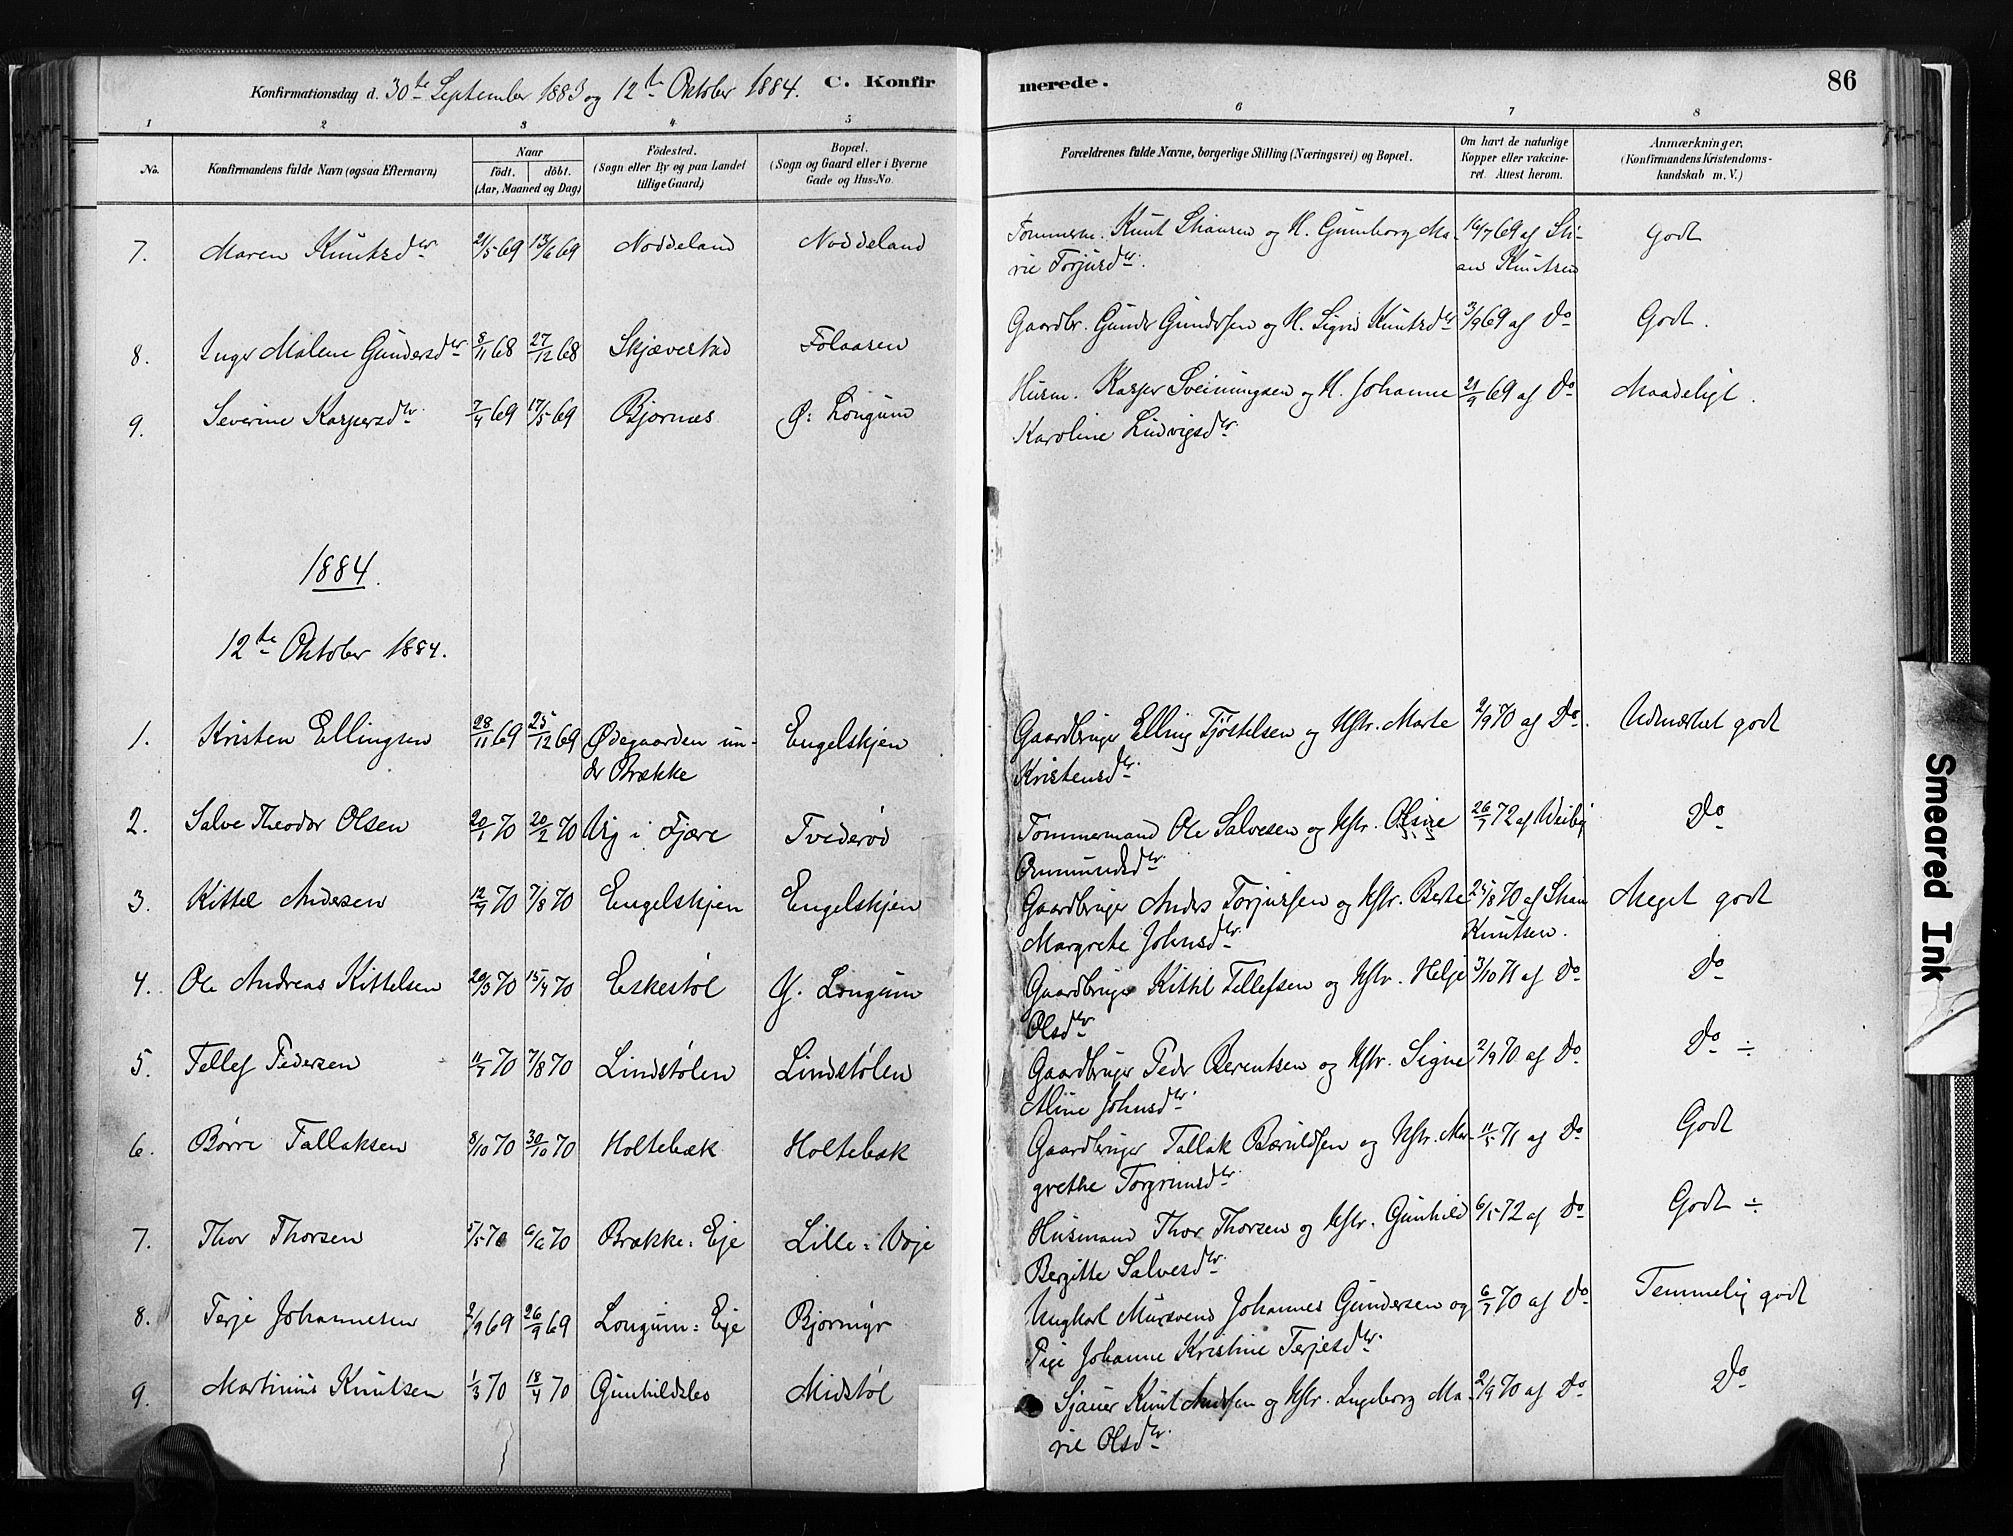 Konfirmationsdag d. 30te September 1883 og 12te Oktober 1884. C. Konfirmerede. 86
1 2 3 4 5 6 7 8
No. Konfirmandens fulde Navn (ogsaa Efternavn) Naar födt. döbt. (Aar, Maaned og Dag) Födested. (Sogn eller By og paa Landet tillige Gaard) Bopæl. (Sogn og Gaard eller i Byerne Gade og Hus-No. Forældrenes fulde Navne, borgerlige Stilling (Næringsvei) og Bopæl. Om havt de naturlige Kopper eller vakcineret. Attest herom. Anmærkninger, (Konfirmandens Kristendomskundskab m. V.)
7. Maren Knutsdtr 21/5 69 13/6 69 Noddeland Noddeland Tømmerm. Knut Stiansen og H. Gunborg Ma- 16/7 69 af Sti- Godt
rie Torjusdtr. an Knutsen
8. Inger Malene Gundersdtr 8/11 68 27/12 68 Skjævestad Folaaren Gaardbr. Gunder Gundersen og H. Signe Knutsdtr 3/9 69 af Do Godt.
9. Severine Kaspersdtr. 7/4 69 17/5 69 Bjornæs Ø: Longum Husm. Kasper Sveinungsen og H. Johanne 21/9 69 af Do Maadeligt.
Karoline Ludvigsdtr
1884.
12te Oktober 1884.
1. Kristen Ellingsen 28/11 69 25/12 69 Ødegaarden un- Engelskjen Gaardbruger Elling Tjøstelsen og Hstr. Marte 2/9 70 af Do. Udmærket godt
der Brække Kristensdtr.
2. Salve Theodor Olsen 20/1 70 20/2 70 Vig i Fjære Tvederød Tømmermand Ole Salvesen og Hstr. Olsine 26/7 72 af Do
Osmundsdtr.
3. Kittel Andersen 12/7 70 7/8 70 Engelskjen Engelskjen Gaardbruger Anders Torjussen og Hstr. Berte 25/8 70 af Stian Meget godt
Margrete Johnsdtr. Knutsen.
4. Ole Andreas Kittelsen 20/3 70 15/4 70 Eskestøl Y. Longum Gaardbruger Kittil Tellefsen og Hstr. Helje 3/10 71 af Do Do
Olsdtr
5. Tellef Pedersen 11/7 70 7/8 70 Lindstølen Lindstølen Gaardbruger Peder Berentsen og Hstr. Signe 2/9 70 af Do Do ÷
Aline Johnsdtr.
6. Børre Tallaksen 8/10 70 30/10 70 Holtebæk Holtebæk Gaardbruger Tallak Bærulfsen og Hstr. Mar- 11/5 71 af Do Godt
grethe Torgrimsdtr.
7. Thor Thorsen 5/5 70 6/6 70 Brække: Eje Lille: Voje Husmand Thor Thorsen og Hstr. Gunhild 6/5 72 af Do Godt ÷
Bergitte Salvesdtr.
8. Terje Johannesen 2/9 69 26/9 69 Longum: Eje Bjormyr Ungkarl Mursvend Johannes Gundersen og 6/7 70 af Do Temmelig godt
Pige Johanne Kristine Terjesdtr.
9. Martinius Knutsen 1/3 70 18/4 70 Gunhildsbo Midstøl Sjauer Knut Andersen og Hstr. Ingeborg Ma- 2/9 70 af Do Do
rie Olsdtr.
Smeared Ink